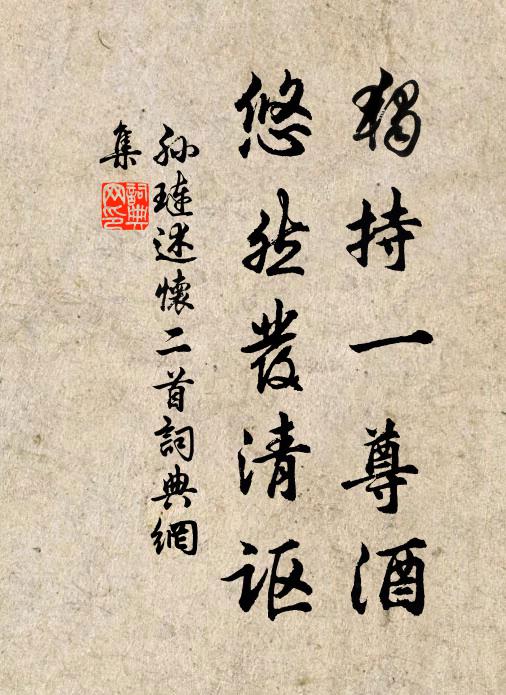 獨持一尊酒
悠然發清讴
孫璉述懷二首詞典網
集
詞典
网印